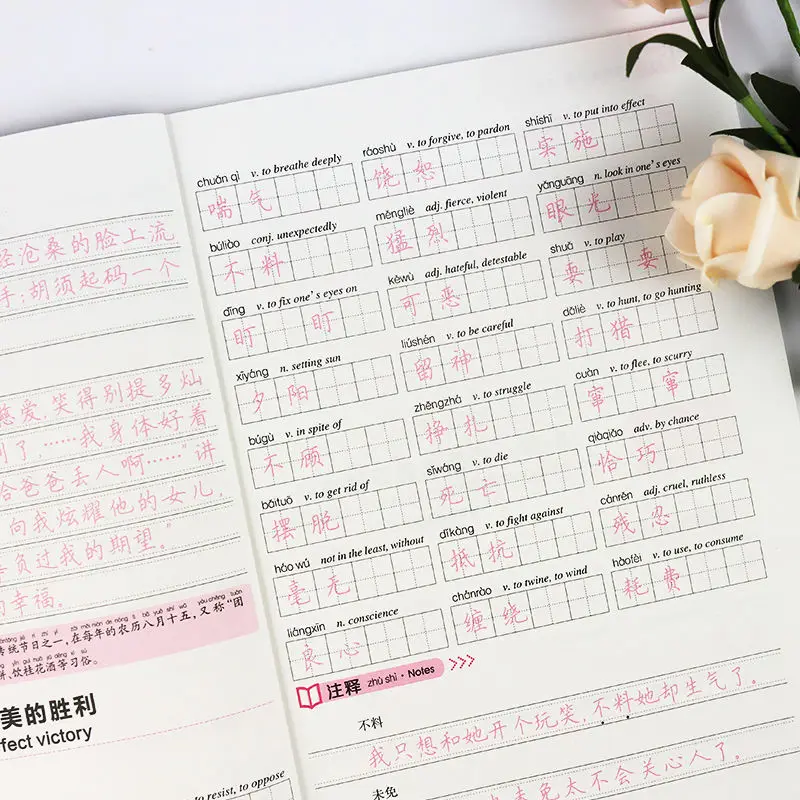 经沧桑的脸上流
手;胡须起码一个
慈爱,笑得别提多灿
到了……我身体好着
给爸爸丢人啊……”讲
向我炫耀他的女儿,
负过我的期望。”
的幸福。
统节日之一,在每年的农历八月十五,又称“团
饼、饮桂花酒等习俗。
美的胜利
fect victory
to resist, to oppose
chuǎn qì v. to breathe deeply
喘气
búliào conj. unexpectedly
不料
dīng v. to fix one's eyes on
盯 盯
xīyáng n. setting sun
夕阳
búgù v. in spite of
不顾
bǎituō v. to get rid of
摆脱
háo wú not in the least, without
毫无
liángxīn n. conscience
良心
ráoshù v. to forgive, to pardon
饶恕
měngliè adj. fierce, violent
猛烈
kěwù adj. hateful, detestable
可恶
liúshén v. to be careful
留神
zhēngzhá v. to struggle
挣扎
sǐwáng v. to die
死亡
dǐkàng v. to fight against
抵抗
chánrào v. to twine, to wind
缠绕
shíshī v. to put into effect
实施
yǎnguāng n. look in one's eyes
眼光
shuǎ v. to play
耍 耍
dǎliè v. to hunt, to go hunting
打猎
cuàn v. to flee, to scurry
窜 窜
qiàqiǎo adv. by chance
恰巧
cánrěn adj. cruel, ruthless
残忍
hàofèi v. to use, to consume
耗费
注释 zhù shì · Notes
不料
我只想和她开个玩笑,不料她却生气了。
未免
未免太不会关心人了。